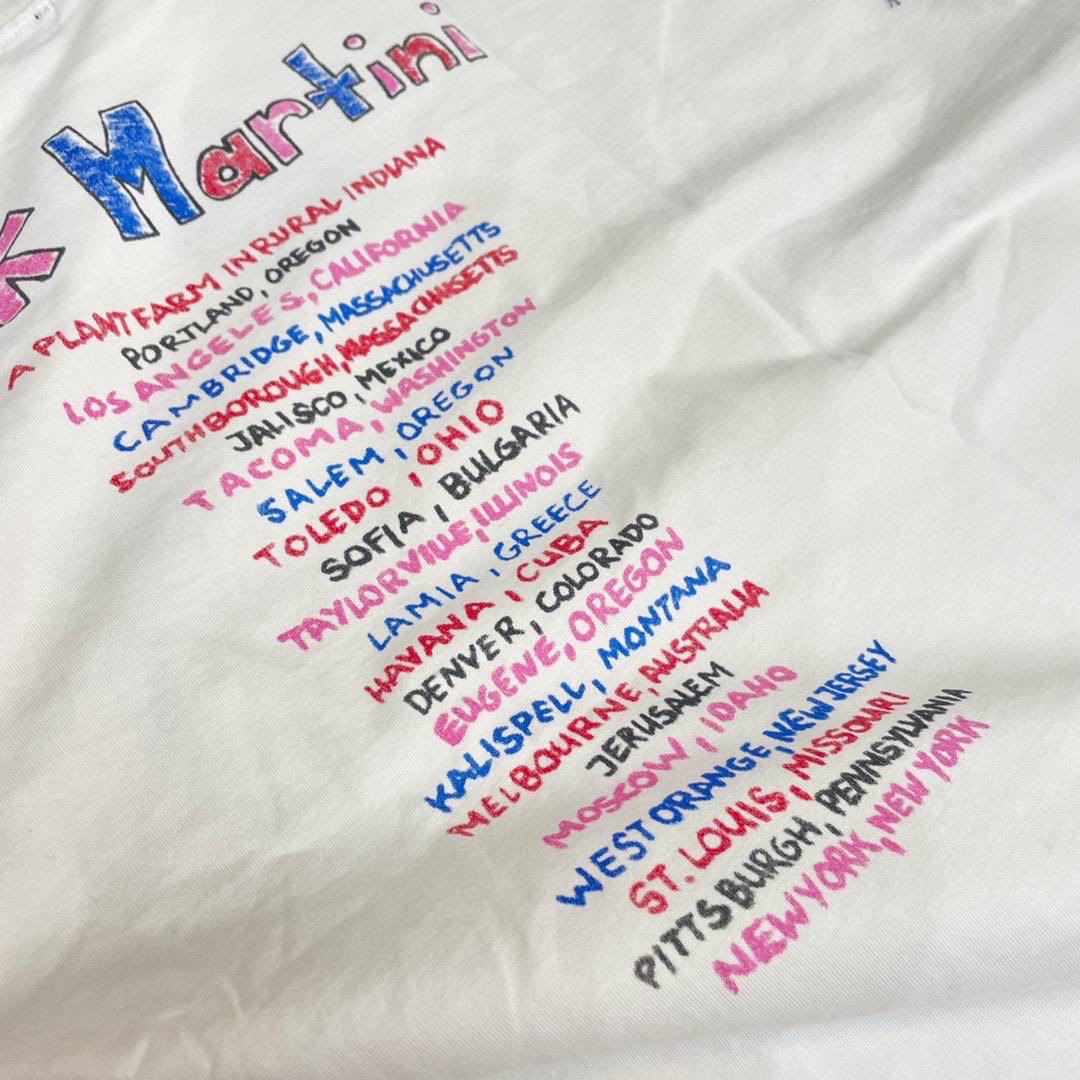 Martini
A PLANT FARM IN RURAL INDIANA
PORTLAND, OREGON
LOS ANGELES, CALIFORNIA
CAMBRIDGE, MASSACHUSETTS
SOUTHBOROUGH, MASSACHUSETTS
JALISCO, MEXICO
TACOMA, WASHINGTON
SALEM, OREGON
TOLEDO, OHIO
SOFIA, BULGARIA
TAYLORVILLE, ILLINOIS
LAMIA, GREECE
HAVANA, CUBA
DENVER, COLORADO
EUGENE, OREGON
KALISPELL, MONTANA
MELBOURNE, AUSTRALIA
JERUSALEM
MOSCOW, IDAHO
WEST ORANGE, NEW JERSEY
ST. LOUIS, MISSOURI
PITTSBURGH, PENNSYLVANIA
NEW YORK, NEW YORK